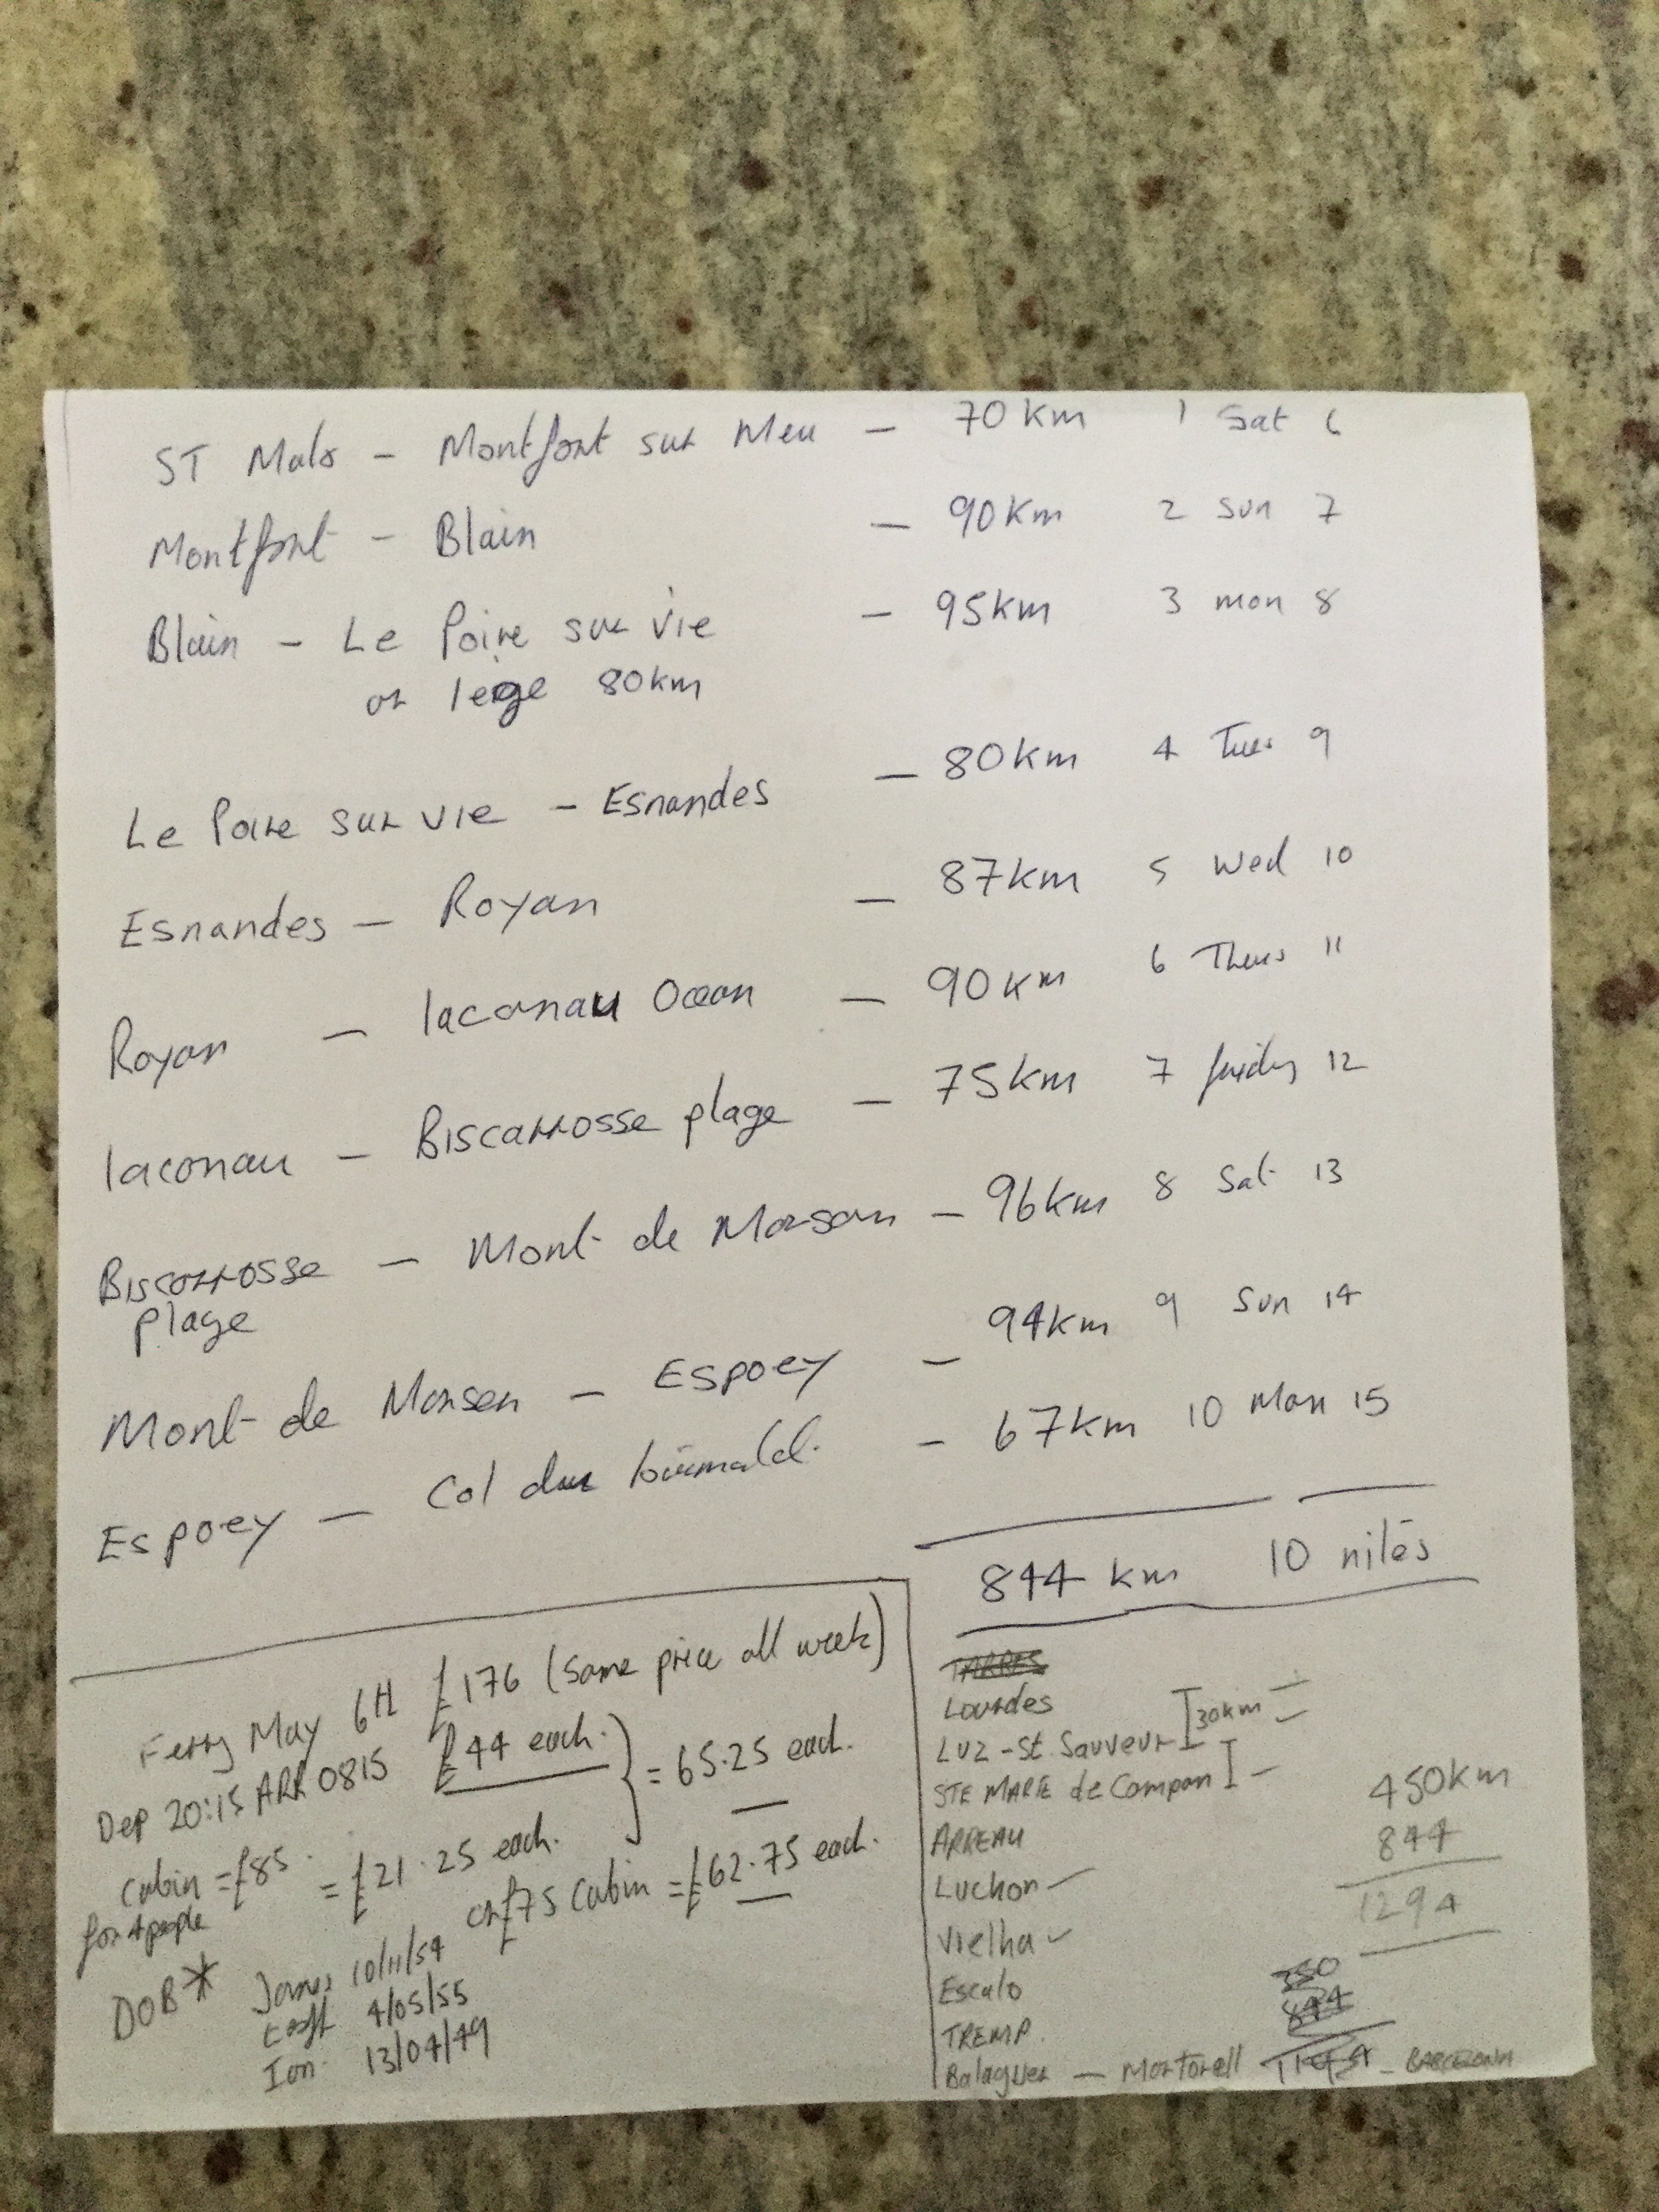 ST Malo - Montfort sur Meu - 70 km 1 Sat 6
Montfort - Blain - 90 Km 2 Sun 7
Blain - Le Poire sur Vie - 95km 3 mon 8
or lege 80km
Le Poire sur vie - Esnandes - 80km 4 Tues 9
Esnandes - Royan - 87km 5 Wed 10
Royan - lacanau Ocean - 90 km 6 Thurs 11
lacanau - Biscarrosse plage - 75km 7 friday 12
Biscarrosse - Mont de Marsan - 96km 8 Sat 13
plage
Mont de Marsan - Espoey - 94km 9 Sun 14
Espoey - Col du 67km 10 Mon 15
844 km 10 nites
Ferry May 6th £176 (same price all week)
Dep 20:15 ARR 0815 £44 each.
= 65.25 each.
Cabin = £85. = £21.25 each.
for 4 people
or £75 Cabin = £62.75 each.
DOB* James 10/11/54
4/05/55
Ian 13/04/49
TARBES
Lourdes
LUZ - St. Sauveur 30km
STE MARIE de Campan
ARREAU
Luchon
Vielha
Escalo
TREMP.
Balaguer - Martorell - BARCELONA
450km
844
1294
350
844